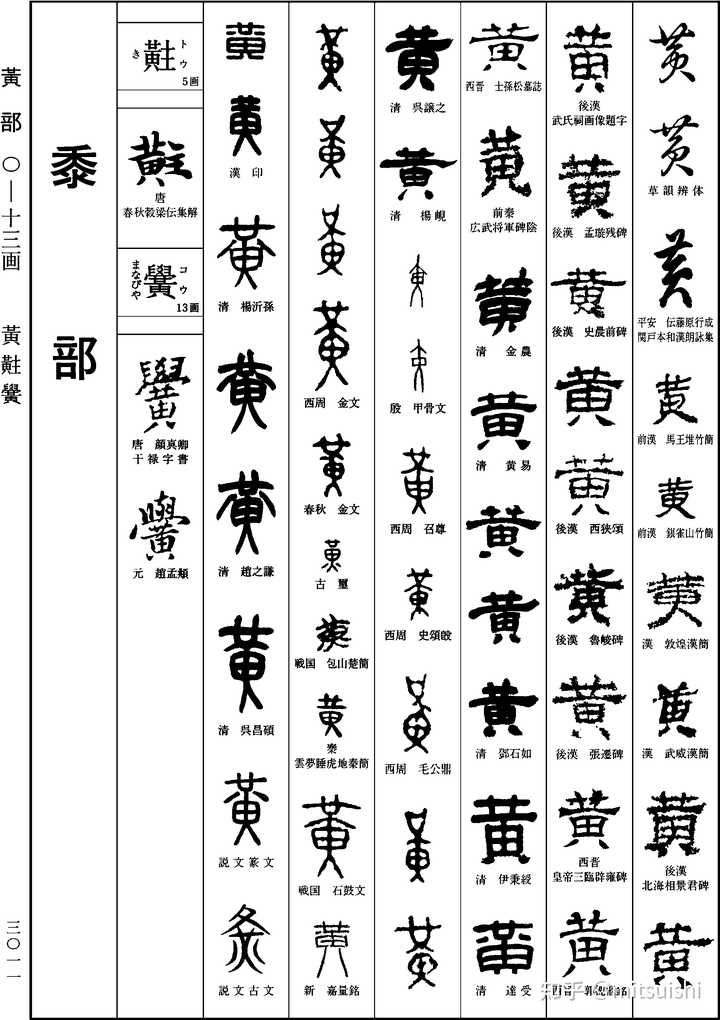 草韻辨体
平安 伝藤原行成
関戸本和漢朗詠集
前漢 馬王堆竹簡
前漢 銀雀山竹簡
漢 敦煌漢簡
漢 武威漢簡
後漢
北海相景君碑
後漢
武氏祠画像題字
後漢 孟璇残碑
後漢 史晨前碑
後漢 西狭頌
後漢 魯峻碑
後漢 張遷碑
西晋
皇帝三臨辟雍碑
西晋
西晋 士孫松墓誌
前秦
広武将軍碑陰
清 金農
清 黄易
清 鄧石如
清 伊秉綬
清 達受
清 呉譲之
清 楊峴
殷 甲骨文
西周 召尊
西周 史頌𣪘
西周 毛公鼎
西周 金文
春秋 金文
古璽
戦国 包山楚簡
秦
雲夢睡虎地秦簡
戦国 石鼓文
新 嘉量銘
漢印
清 楊沂孫
清 趙之謙
清 呉昌碩
説文篆文
説文古文
黈 トウ き 5画
唐
春秋穀梁伝集解
黌 コウ まなびや 13画
唐 顔真卿
干禄字書
元 趙孟頫
黍部
黃部 〇—十三画 黃黈黌
三〇一一
知乎 @mitsuishi